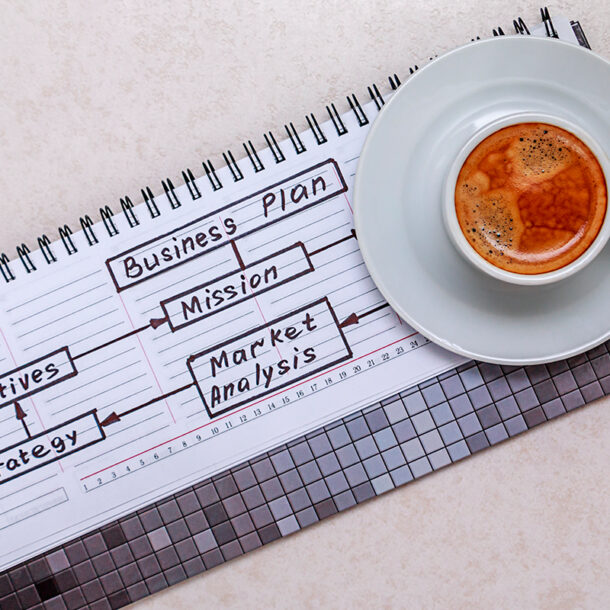 Business Plan
Mission
Market
Analysis
tives
rategy
1 2 3 4 5 6 7 8 9 10 11 12 13 14 15 16 17 18 19 20 21 22 23 24